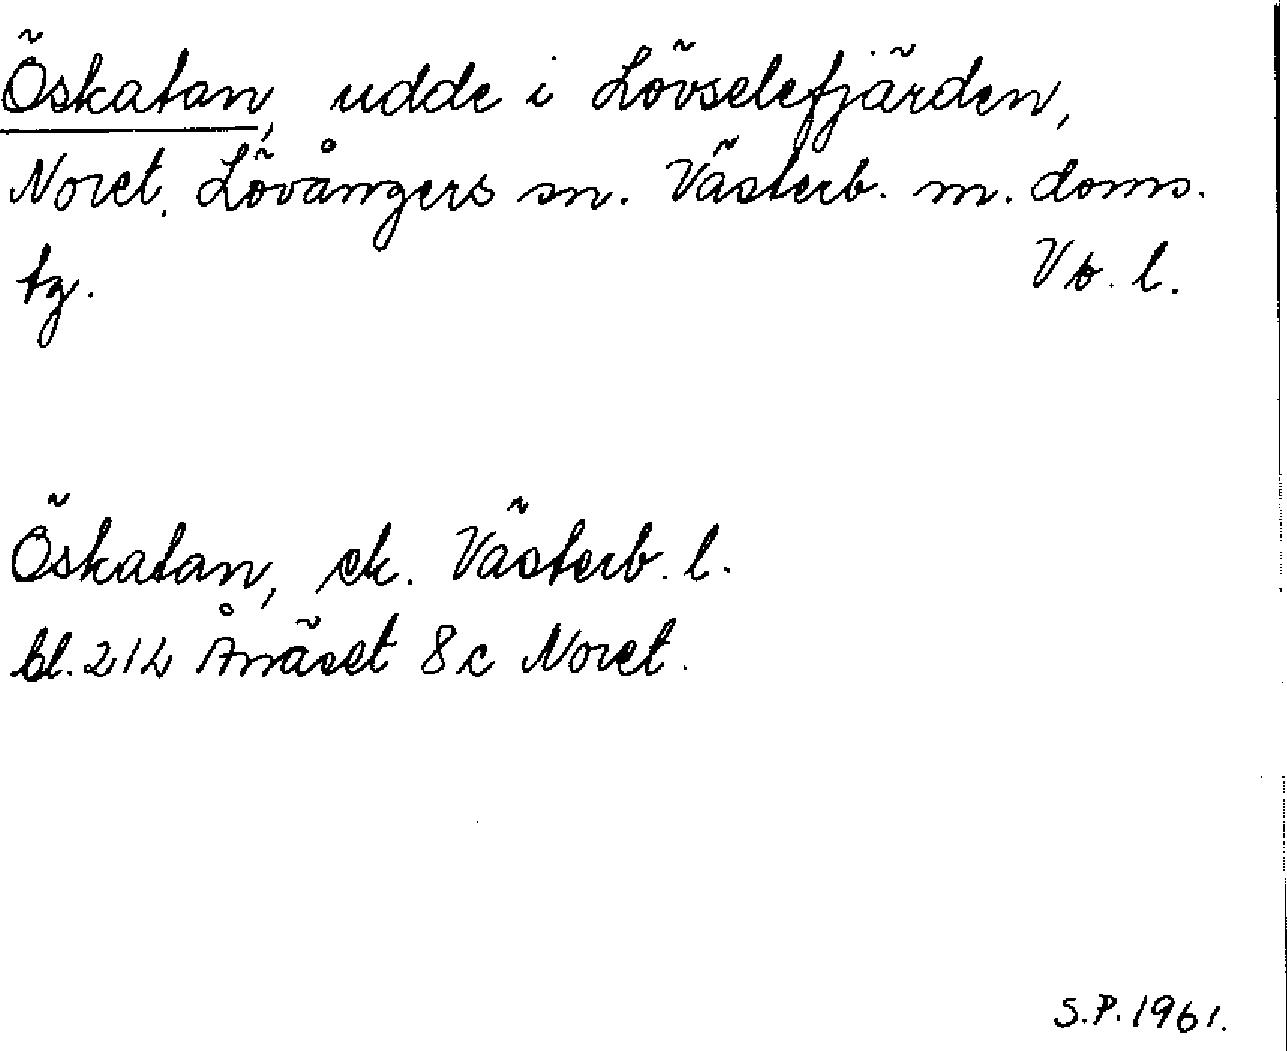 Öskatan, udde i Lövselefjärden,
Noret, Lövångers sn. Västerb. m. doms.
tg. Vb. l.
Öskatan, ek. Västerb. l.
bl. 21L Ånäset 8c Noret.
S.P. 1961.